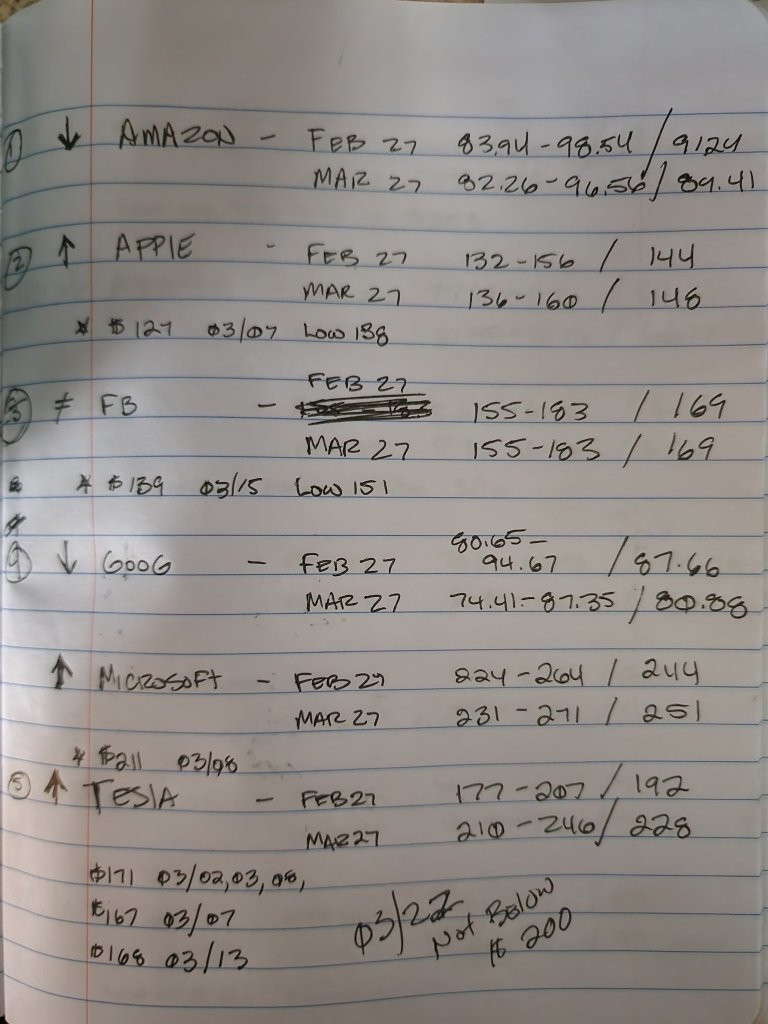 ① ↓ AMAZON - FEB 27 83.94 - 98.54 / 91.24
MAR 27 82.26 - 96.56 / 89.41
② ↑ APPlE - FEB 27 132 - 156 / 144
MAR 27 136 - 160 / 148
* $127 03/07 Low 138
FEB 27
③ ≠ FB - 155 - 183 / 169
MAR 27 155 - 183 / 169
* $139 03/15 Low 151
80.65 -
④ ↓ GOOG - FEB 27 94.67 / 87.66
MAR 27 74.41 - 87.35 / 80.88
↑ MICROSOFT - FEB 27 224 - 264 / 244
MAR 27 231 - 271 / 251
* $211 03/08
⑤ ↑ TESlA - FEB 27 177 - 207 / 192
MAR 27 210 - 246 / 228
$171 03/02, 03, 08,
$167 03/07
$168 03/13
03/22
Not Below
$ 200